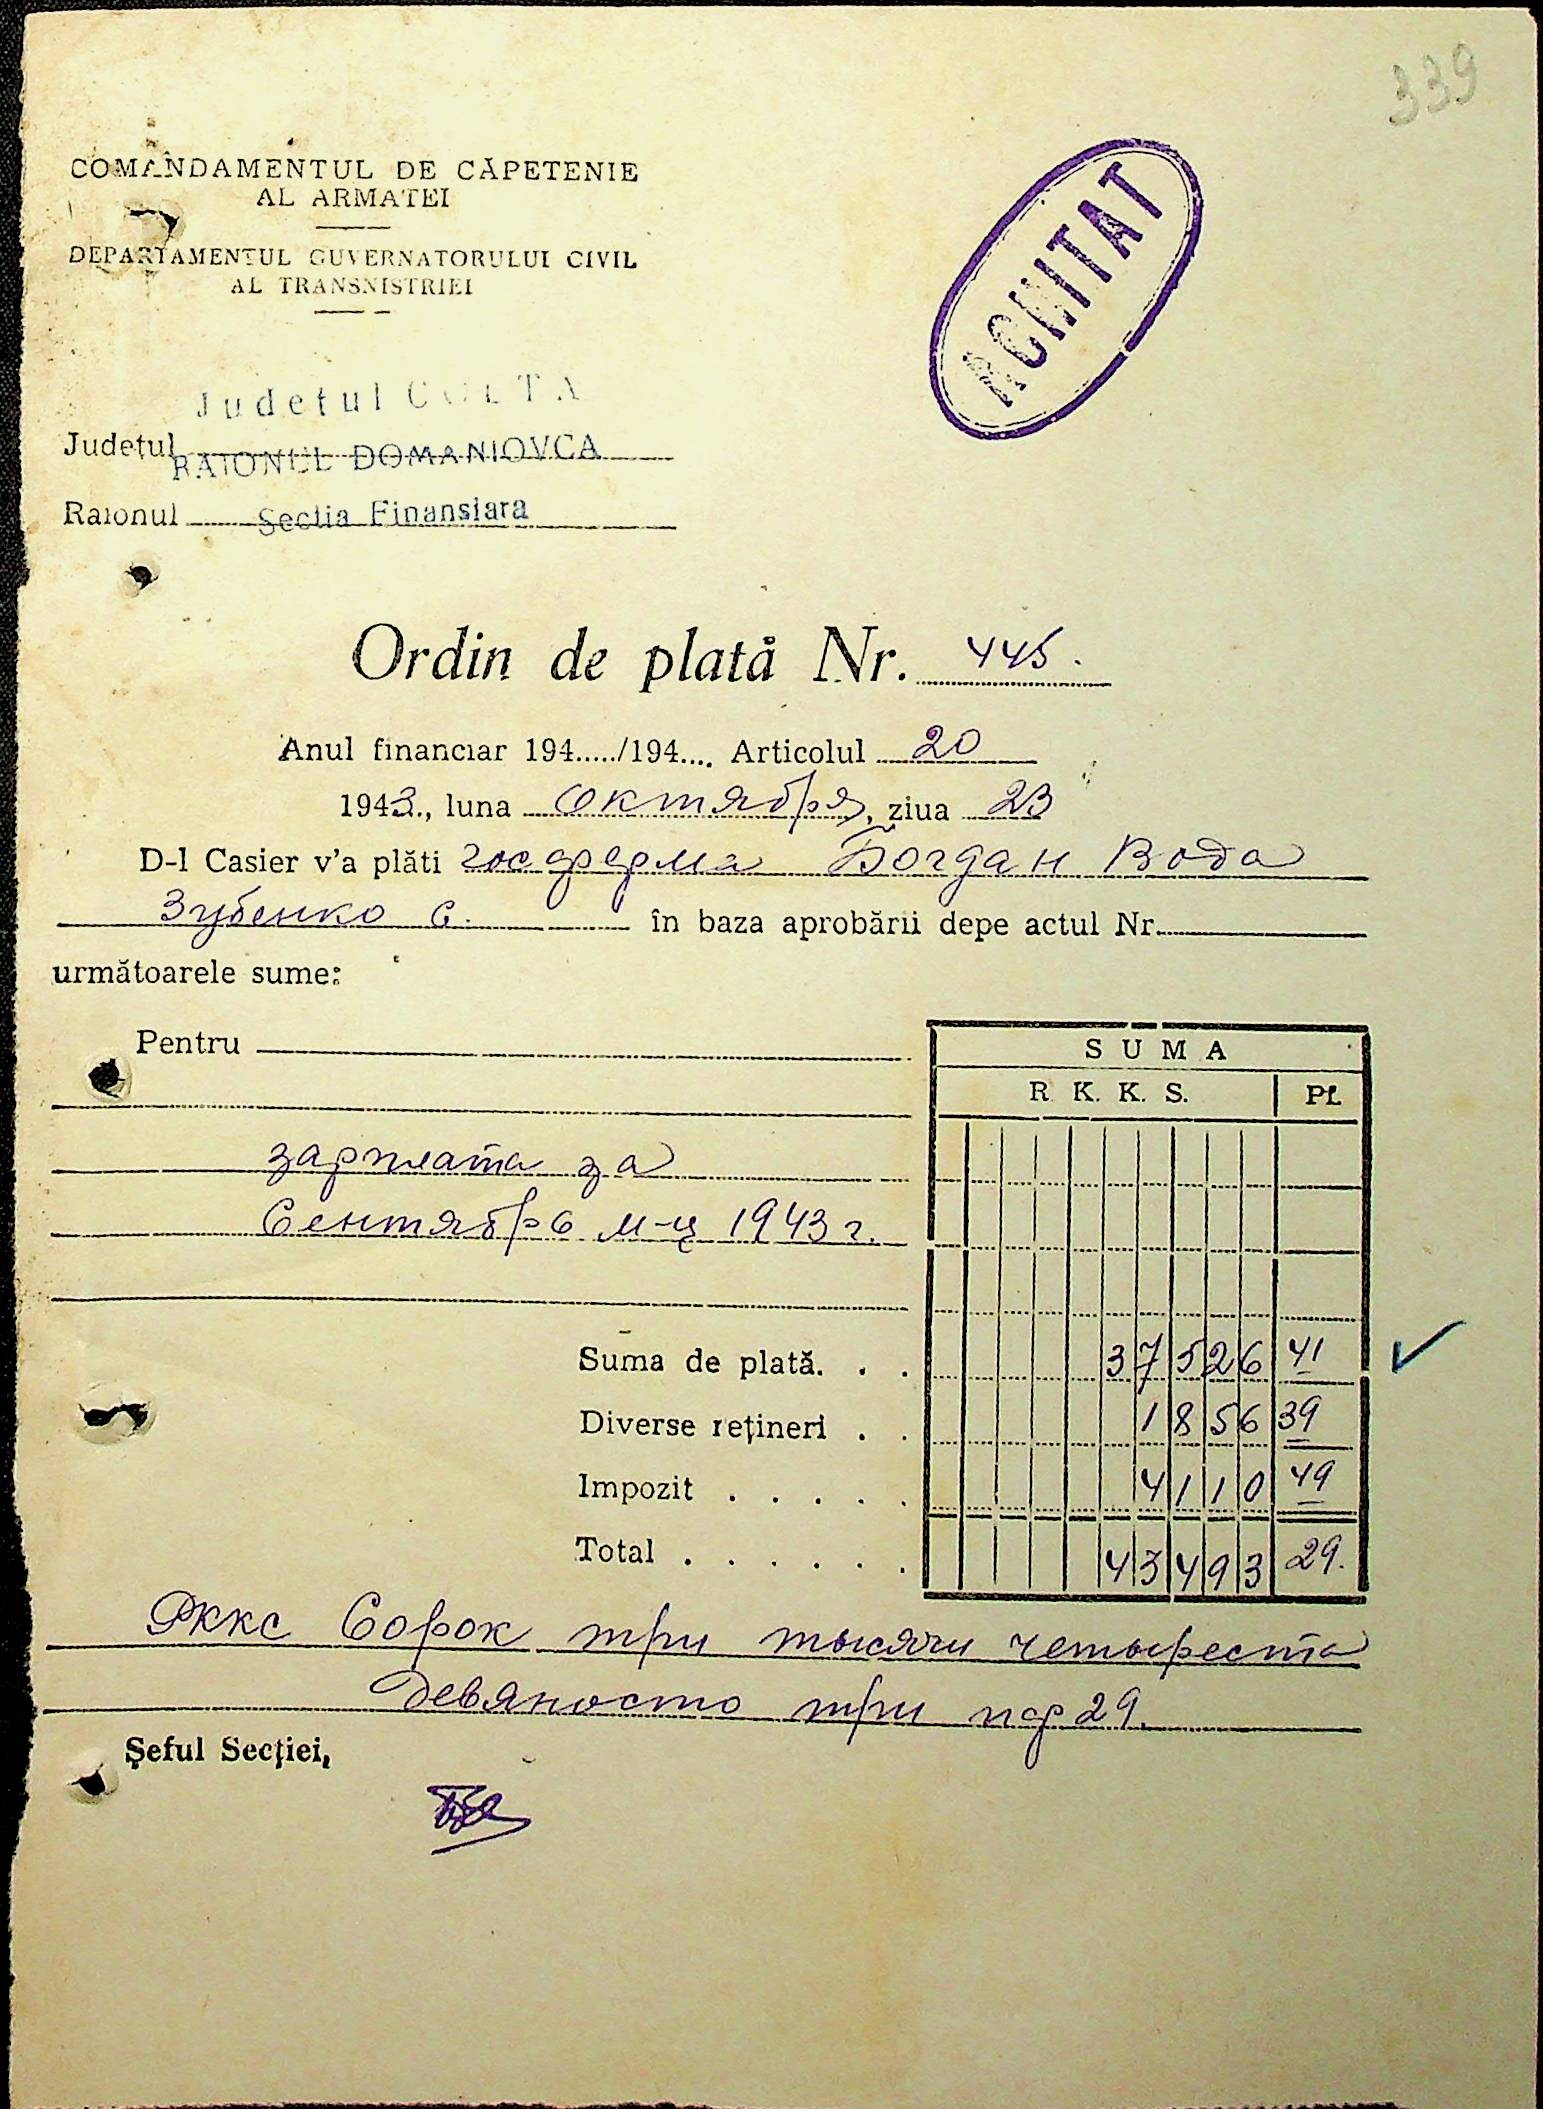 339
COMANDAMENTUL DE CĂPETENIE
AL ARMATEI
DEPARTAMENTUL GUVERNATORULUI CIVIL
AL TRANSNISTRIEI
ACHITAT
Judetul GOLTA
Judeţul RAIONUL DOMANIOVCA
Raionul Sectia Finansiara
Ordin de plată Nr. 445.
Anul financiar 194...../194.... Articolul 20
1943., luna Октября, ziua 23
D-l Casier v'a plăti госферма Богдан Вода
Зубенко с. în baza aprobării depe actul Nr.
următoarele sume:
Pentru
SUMA
R. K. K. S. Pf.
зарплата за
Сентябрь м-ц 1943 г.
Suma de plată. . . 37526 41
Diverse reţineri . . 1856 39
Impozit . . . . . 4110 49
Total . . . . . . 43493 29.
Рккс Сорок три тысячи четыреста
Девяносто три пф 29.
Şeful Secţiei,